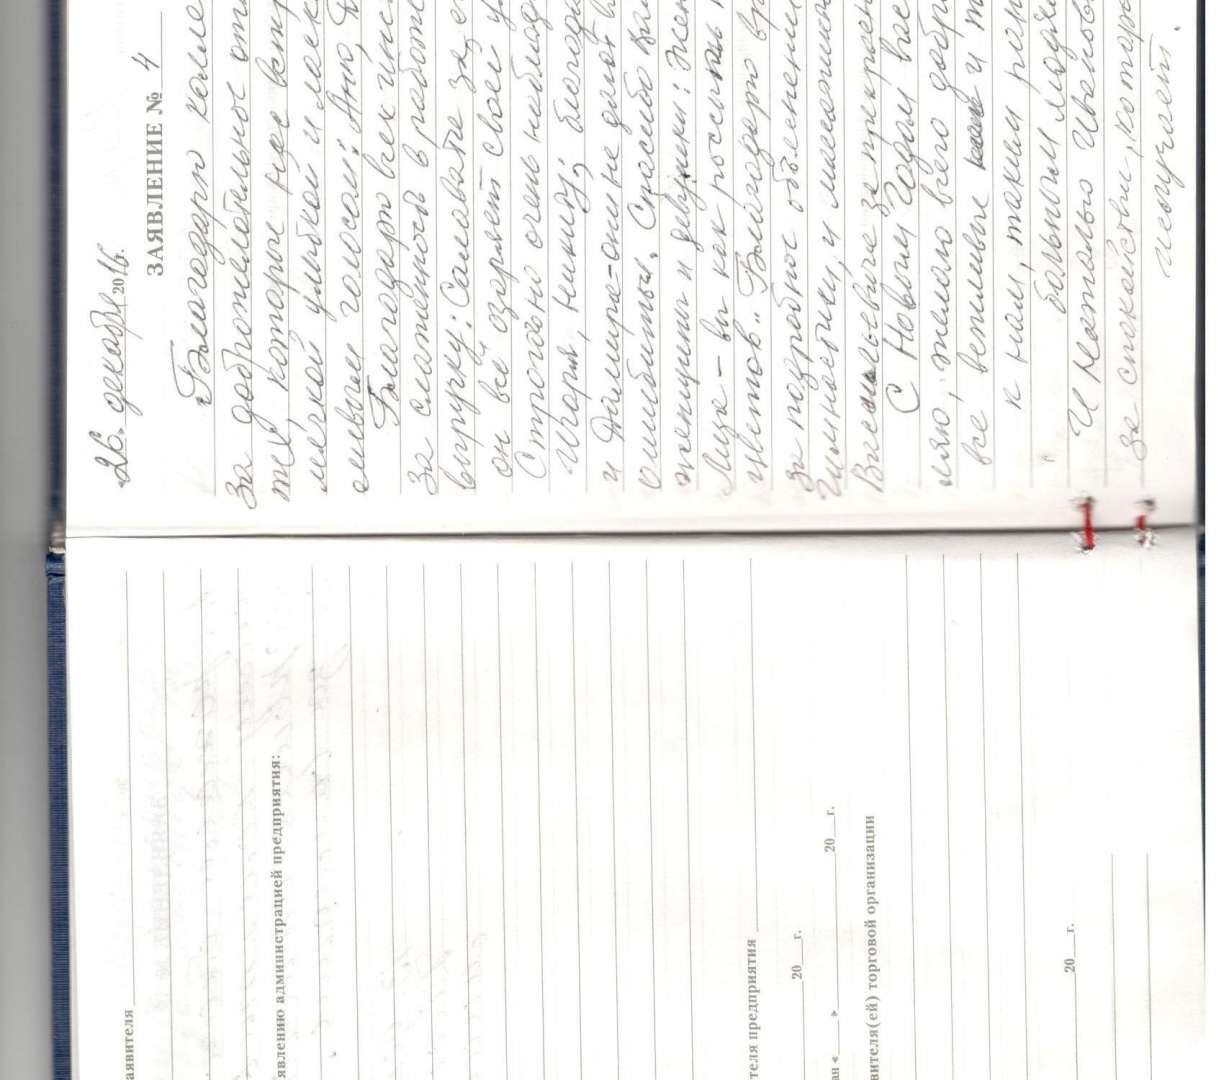 26. декабря 2016г.
ЗАЯВЛЕНИЕ № 4
Благодарю колле
за доброжелательное отн
тех, которые нас встр
лёгкой улыбкой и
голосом: Аню,
Благодарю всех инс
за слаженность в работе
выручку: Салавата за
он всё озаряет своей у
Строгую очень наблюд
Игоря, Никиту; благодар
и Дамира - они не дают
ошибиться. Спасибо
женщины и девушки: Жен
Луза - вы как россыпь
цветов.. Благодарю вр
за подробное объяснени
Гимнастики, и
за прекрасн
С Новым Годом все
желаю всего добр
все вежливые и
к нам, таким ран
больным людям
И Наталью Иванов
за спокойствие, котор
излучает.
аявителя
явлению администрацией предприятия:
теля предприятия
20 г.
ан « » 20 г.
вителя(ей) торговой организации
20 г.